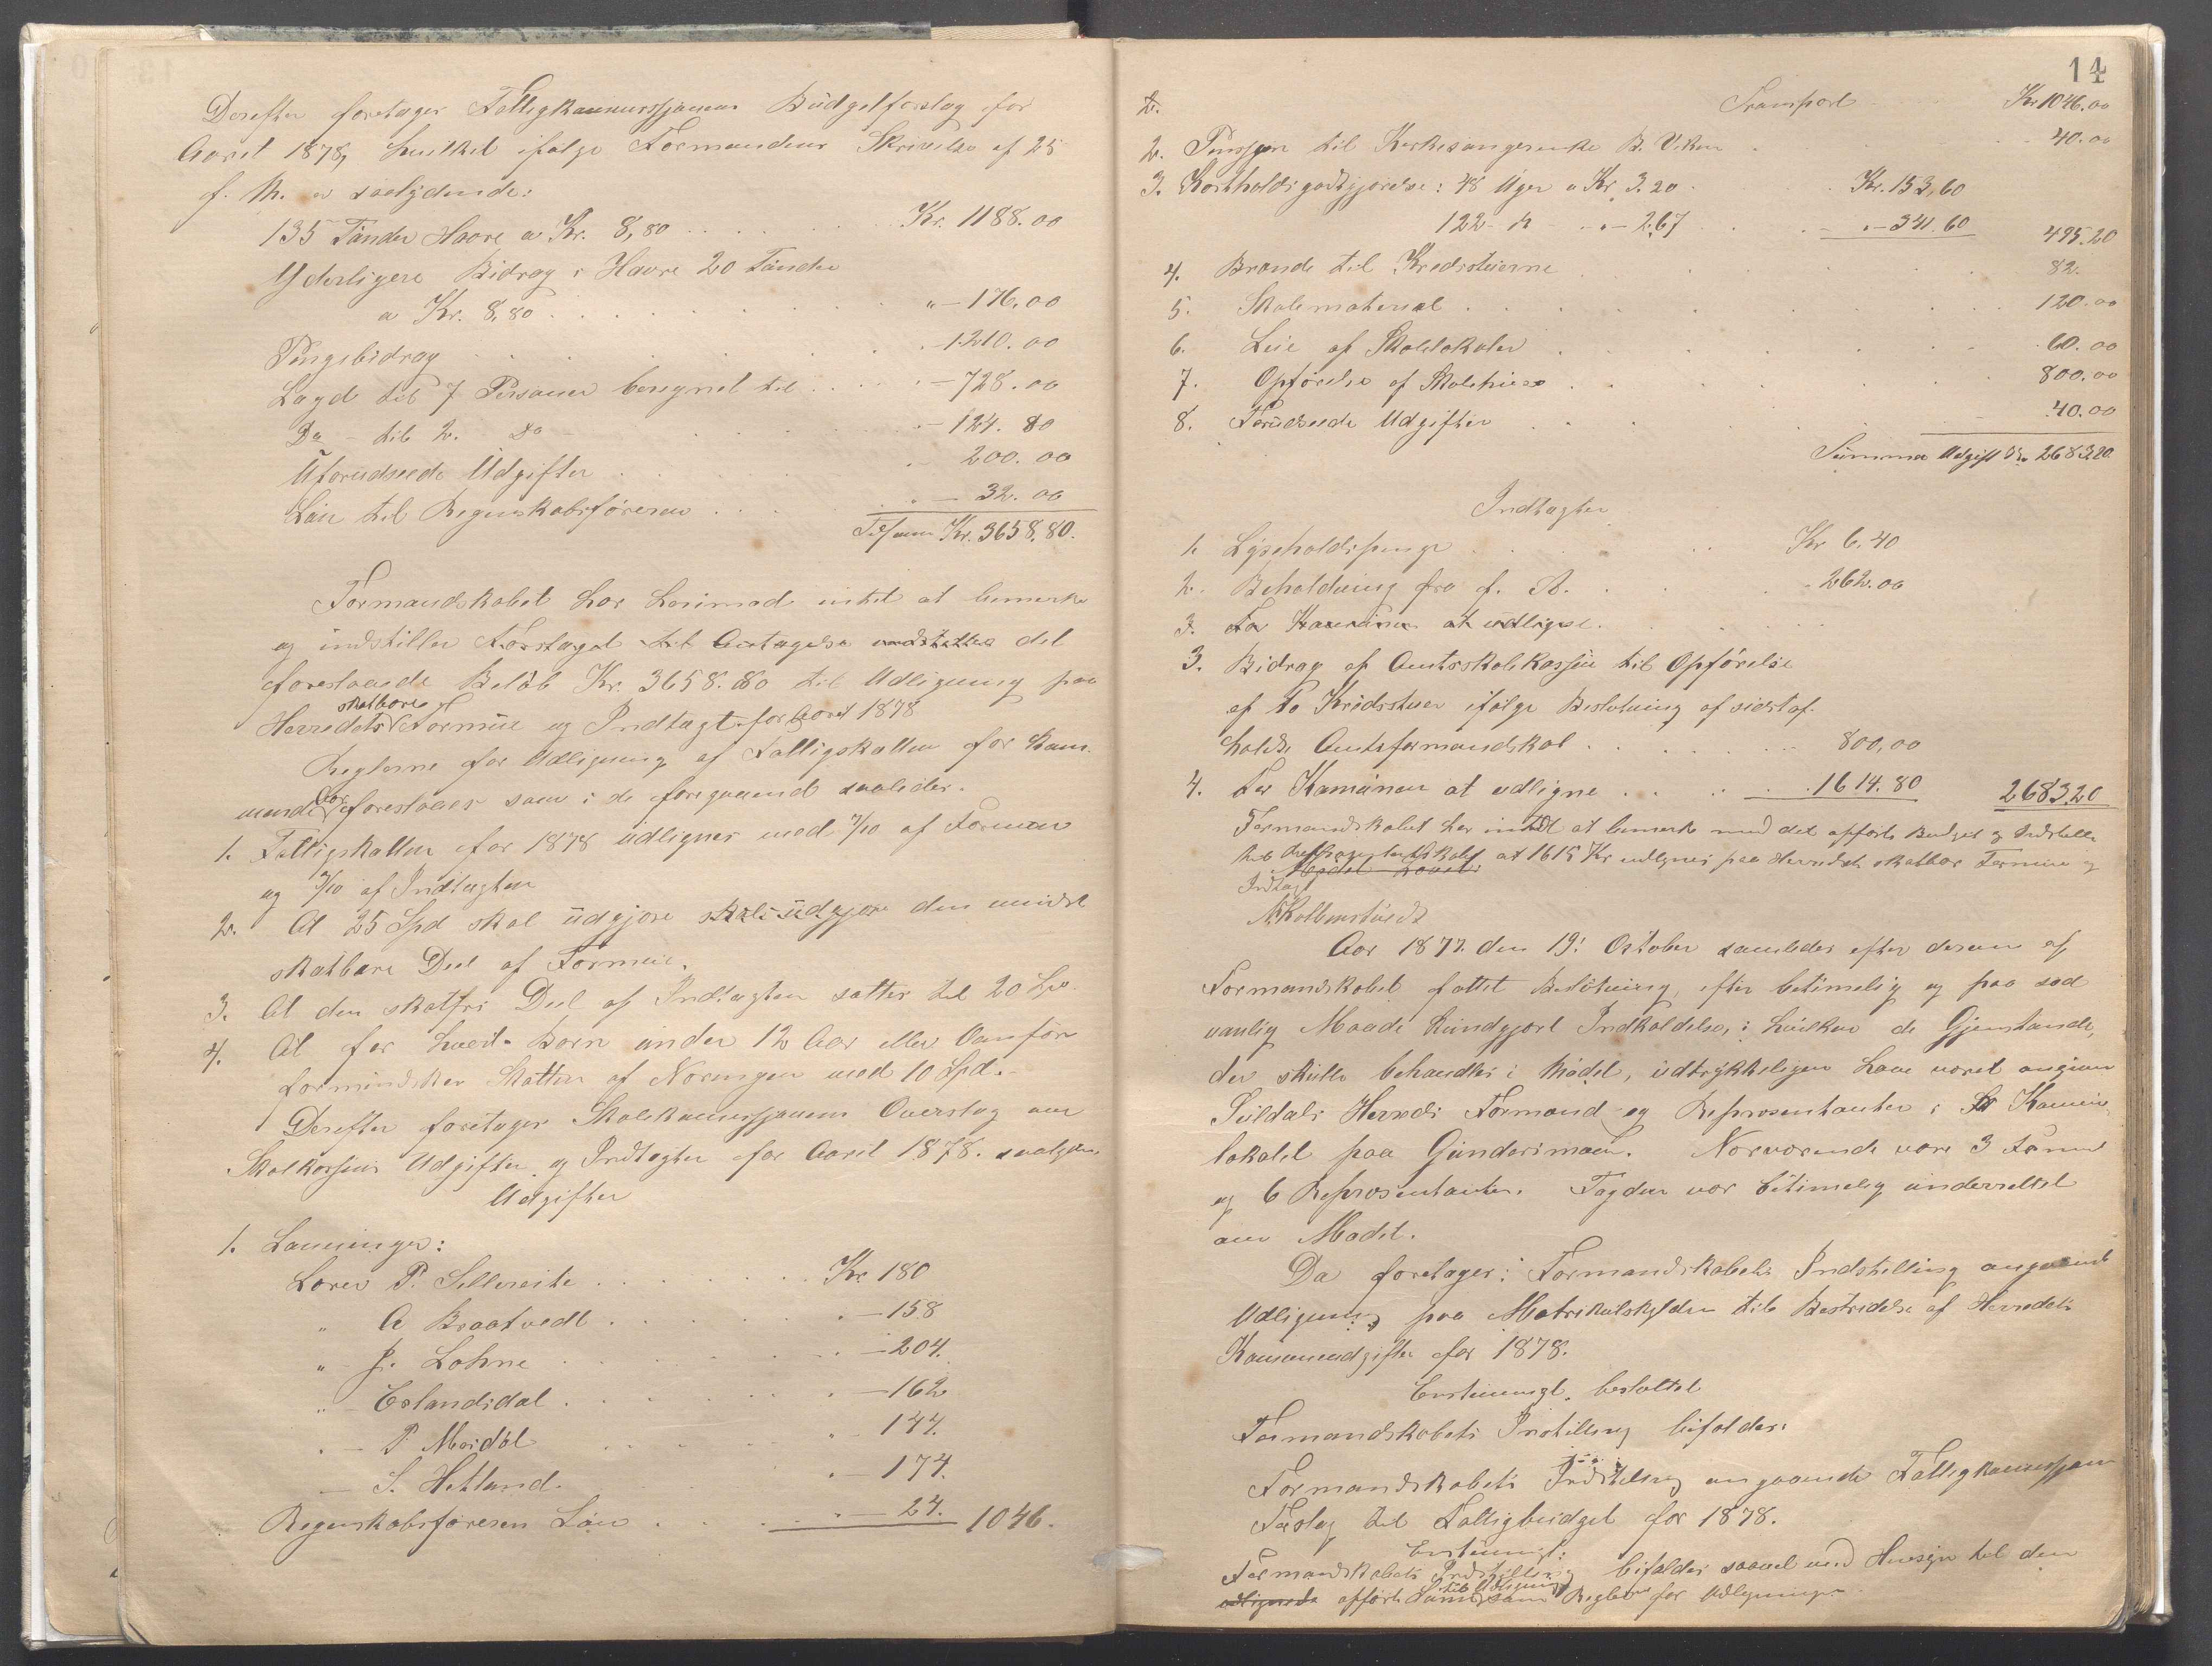 Derefter foretages Fattigkommissjonens Büdgetforslag for
Aaret 1878, hvilket ifølge Formandens Skrivelse af 25
f. M. er saalydende:
135 Tønder Havre a Kr. 8,80 . . . . . Kr. 1188.00
Yderligere Bidrag i Havre 20 Tønder
a Kr. 8,80 . . . . . " — 176.00
Pengebidrag . . . . . — 1210.00
Lægd til 7 Personer beregnet til . . . . — 728.00
Do - til 2. Do - — 124.80
Uforudseede Udgifter . . . — 200.00
Løn til Regnskabsføreren . . . " — 32.00
Tilsam Kr. 3658,80.
Formandskabet har herimod intet at bemærke
og indstiller Forslaget til Antagelse det
forestaaende Beløb Kr. 3658.80 til Udligning paa
Herredets skatbare Formue og Indtægt for Aaret 1878
Reglerne for Udligning af Fattigskatten for kom-
mende Aar foreslaaes som i de foregaaende saaledes.
1. Fattigskatten for 1878 üdlignes med 7/10 af Formuen
og 3/10 af Indtægten
2. At 25 Spd skal üdgjøre skal üdgjøre den mindst
skatbare Deel af Formue.
3. At den skatfri Deel af Indtægten sættes til 20 Spd
4. At for hvert Børn ünder 12 Aar eller Vanføre
formindsker Skatten af Næringen med 10 Spd. -
Derefter foretages Skolekommissjonens Overslag over
Skolekassens Udgifter og Indtægter for Aaret 1878. saalyden
Udgifter
1. Lønninger:
Lærer P. Sellereite . . . . . Kr 180
" A Braatvedt . . . . . " — 158
" - J. Lohne . . . . — 204.
" - Eslandsdal . . . . . — 162
" — P. Moidal . . . " - 144.
— S. Hetland. " — 174.
Regnskabsføreren Løn . . . . — 24. 1046.
14
2. Transport Kr 1046.00
2. Pension til Kirkesangerenke B. Viken . . 40.00
3. Kostholdsgodtgjørelse: 48 Uger a Kr. 3.20 . Kr. 153,60
122 - " - 2.67 . . " — 341.60 495.20
4. Brænde til Kredsstuerne . . . . 82.
5. Skolemateriel . . . . . 120.00
6. Leie af Skolelokaler . . . . 60.00
7. Opførelse af Skolehuse . . . . 800.00
8. Uforudseede Udgifter . . . . 40.00
Summa Udgift Kr. 2683.20
Indtægter
1. Lyseholdspenge . . . . . Kr 6,40
2. Beholdning fra f. A. . . . 262.00
3. For Kommunen at udligne. . . . .
3. Bidrag af Amtsskolekassen til Opførelse
af to Kredsstuer ifølge Beslutning af sidst af-
holdte Amtsformandskab . . . . . 800,00
4. For Kommunen at udligne . . . . 1614.80 2683.20
Formandskabet har intet at bemærke med det opførte Budget og Indstiller
til Repræsentantskabet at 1615 Kr udlignes paa Herredets skatbar Formue og
Indtægt
N. Kolbenstvedt
Aar 1877. den 19: October samledes efter derom af
Formandskabet fattet Beslutning, efter betimelig og paa sæd
vanlig Maade kundgjort Indkaldelse, i hvilken de Gjenstande,
der skulle behandles i Mødet, üdtrykkeligen have været angiven
Suldals Herreds Formænd og Repræsentanter i Kommune-
lokalet paa Gündersmoen. Nærværende vare 3 Formænd
og 6 Repræsentanter. Fogden var betimelig ünderrettet
om Mødet.
Da foretages: Formandskabets Indstilling angaaende
Udligning paa Matrikulskylden til Bestridelse af Herredets
Kommuneudgifter for 1878.
Enstemmigt. besluttet
Formandskabets Instilling bifaldes.
Formandskabets Indstilling angaaende Fattigkommissjonens
Forslag til Fattigbudget for 1878.
Enstemmigt:
Formandskabets Indstilling bifaldes saavel med Hensyn til den
udlignede opførte Sum til Udligning som Reglerne for Udligningen.